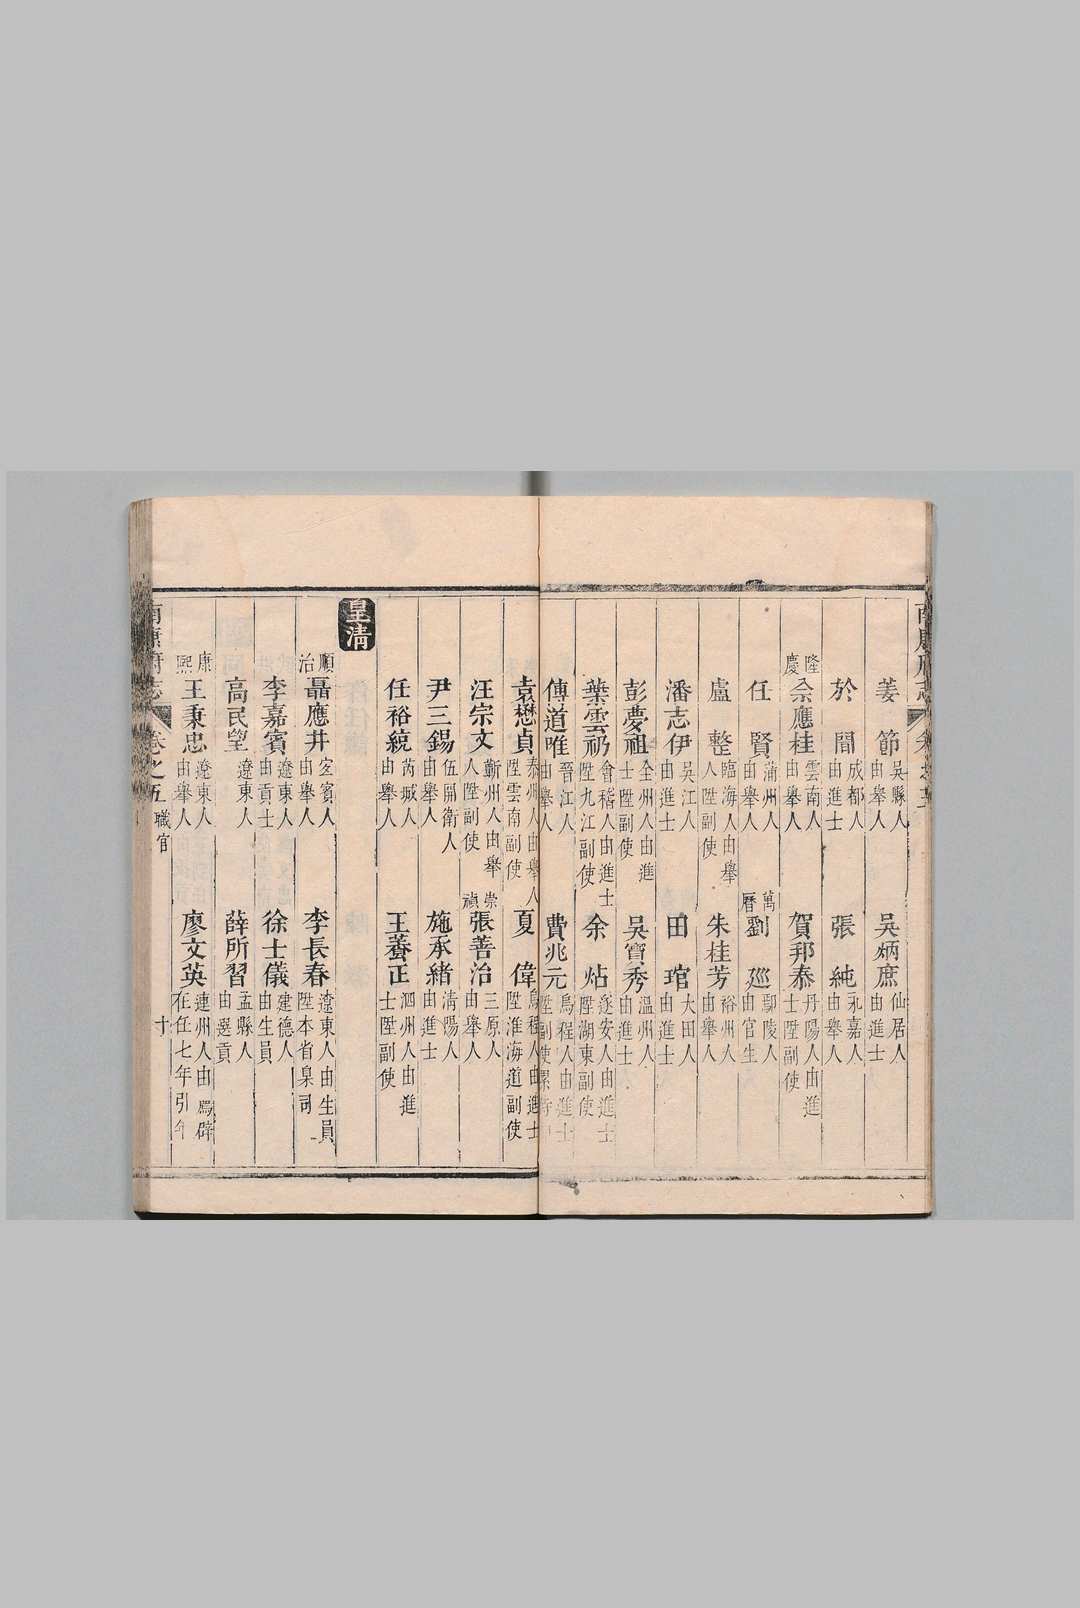 姜節 吳縣人由舉人 吳炳庶 仙居人由進士
於間 成都人由進士 張純 永嘉人由舉人
隆慶 佘應桂 雲南人由舉人 賀邦泰 丹陽人由進士陞副使
任賢 蒲州人由舉人 萬曆 劉廵 鄢陵人由官生
盧整 臨海人由舉人陞副使 朱桂芳 裕州人由舉人
潘志伊 吳江人由進士 田琯 大田人由進士
彭夢祖 全州人由進士陞副使 吳寶秀 溫州人由進士
葉雲礽 會稽人由進士陞九江副使 余炶 遂安人由進士陞湖東副使
傅道唯 晉江人由舉人 費兆元 烏程人由進士陞副使
袁懋貞 泰州人由舉人陞雲南副使 夏偉 烏程人由進士陞淮海道副使
汪宗文 蘄州人由舉人陞副使 崇禎 張善治 三原人由舉人
尹三錫 伍開衛人由舉人 施承緒 清陽人由進士
任裕統 芮城人由舉人 王養正 泗州人由進士陞副使
皇清
順治 聶應井 宜賓人由舉人 李長春 遼東人由生員陞本省臬司
李嘉賓 遼東人由貢士 徐士儀 建德人由生員
高民望 遼東人 薛所習 孟縣人由選貢
康熙 王秉忠 遼東人由舉人 廖文英 連州人由薦辟在任七年引年
南康府志 卷之五 職官 十